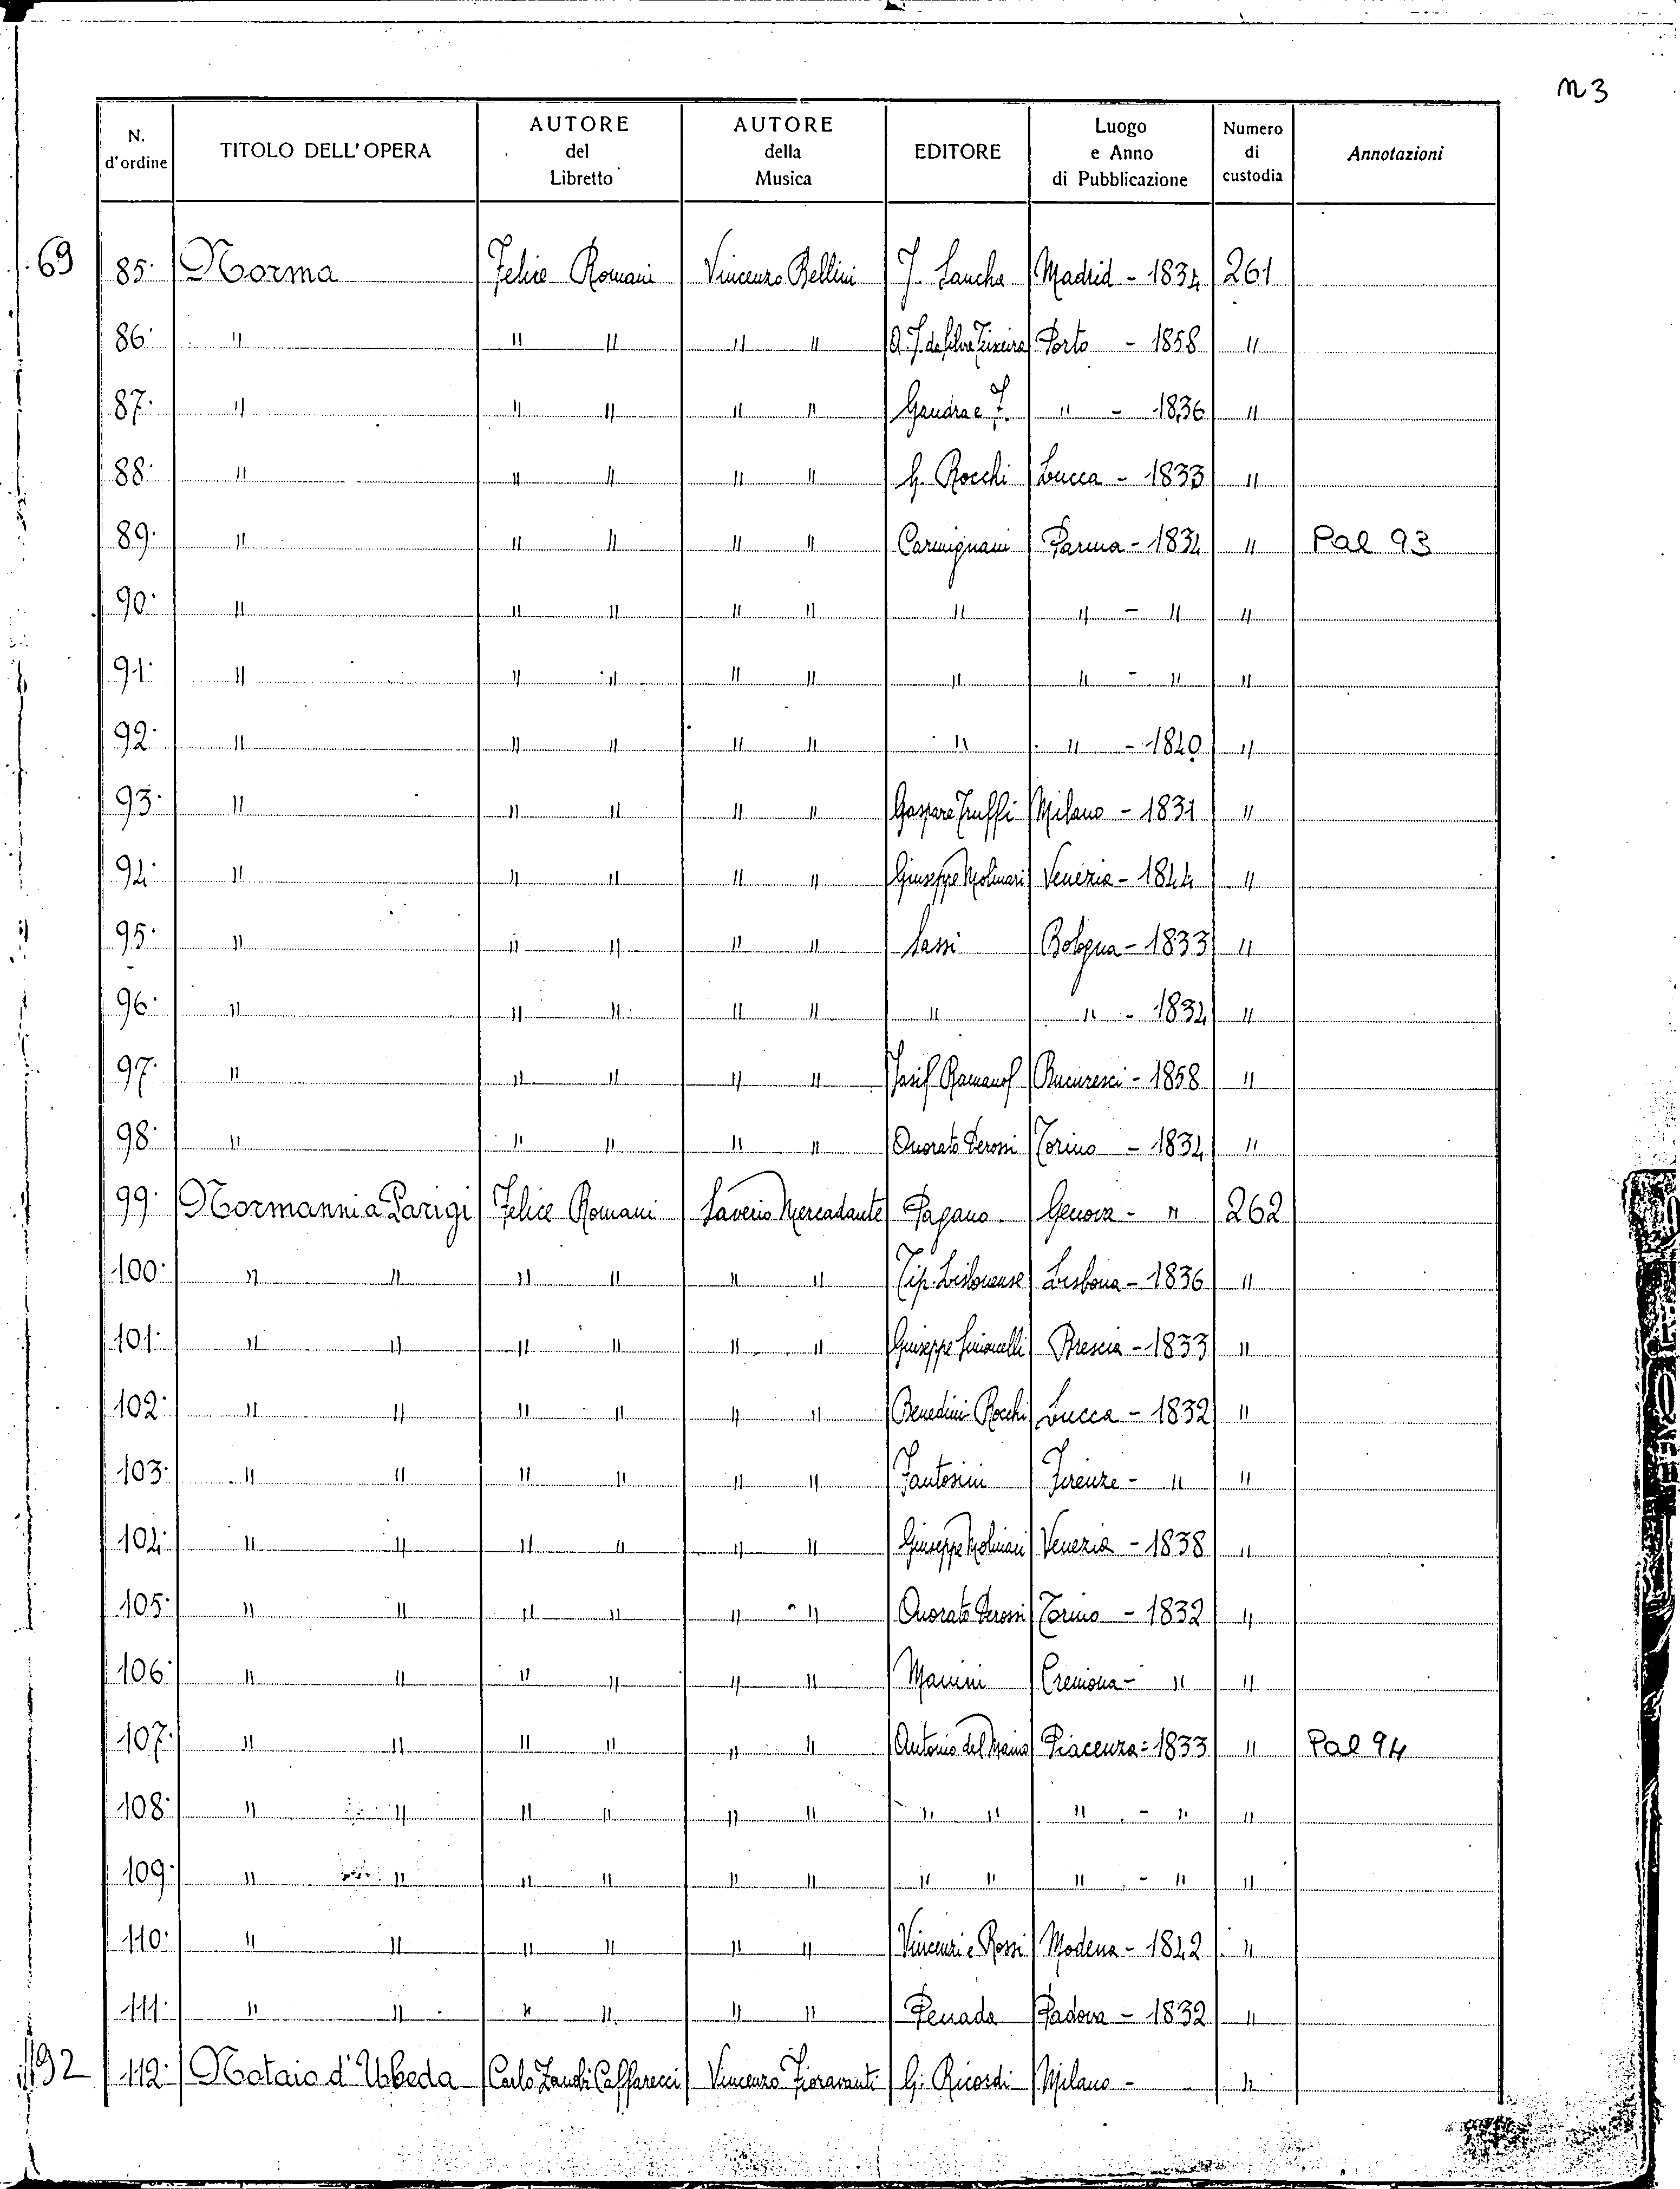 n 3
N. d'ordine TITOLO DELL'OPERA AUTORE del Libretto AUTORE della Musica EDITORE Luogo e Anno di Pubblicazione Numero di custodia Annotazioni
69 85· Norma Felice Romani Vincenzo Bellini J. Sancha Madrid - 1834 261
86· " " " " " A. J. da Silva Teixeira Porto - 1858 "
87· " " " " " Gandra e F. " - 1836 "
88· " " " " " G. Rocchi Lucca - 1833 "
89· " " " " " Carmignani Parma - 1834 " Pal 93
90· " " " " " " " - " "
91· " " " " " " " - " "
92· " " " " " " " - 1840 "
93· " " " " " Gaspare Truffi Milano - 1831 "
94· " " " " " Giuseppe Molinari Venezia - 1844 "
95· " " " " " Sassi Bologna - 1833 "
96· " " " " " " " - 1834 "
97· " " " " " Iosif Romanof Bucuresci - 1858 "
98· " " " " " Onorato Derossi Torino - 1834 "
99· Normanni a Parigi Felice Romani Saverio Mercadante Pagano Genova - " 262
100· " " " " " " Tip. Lisbonense Lisbona - 1836 "
101· " " " " " " Giuseppe Simoncelli Brescia - 1833 "
102· " " " " " " Benedini Rocchi Lucca - 1832 "
103· " " " " " " Fantosini Firenze - " "
104· " " " " " " Giuseppe Molinari Venezia - 1838 "
105· " " " " " " Onorato Derossi Torino - 1832 "
106· " " " " " " Manini Cremona - " "
107· " " " " " " Antonio del Maino Piacenza - 1833 " Pal 94
108· " " " " " " " " " - " "
109· " " " " " " " " " - " "
110· " " " " " " Vincenzi e Rossi Modena - 1842 "
111· " " " " " " Penada Padova - 1832 "
192 112· Notaio d'Ubeda Carlo Zanobi Caffarecci Vincenzo Fioravanti G. Ricordi Milano - "